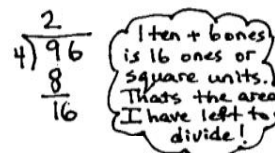 2
4) 96
8
16
1 ten + 6 ones
is 16 ones or
square units.
Thats the area
I have left to
divide!